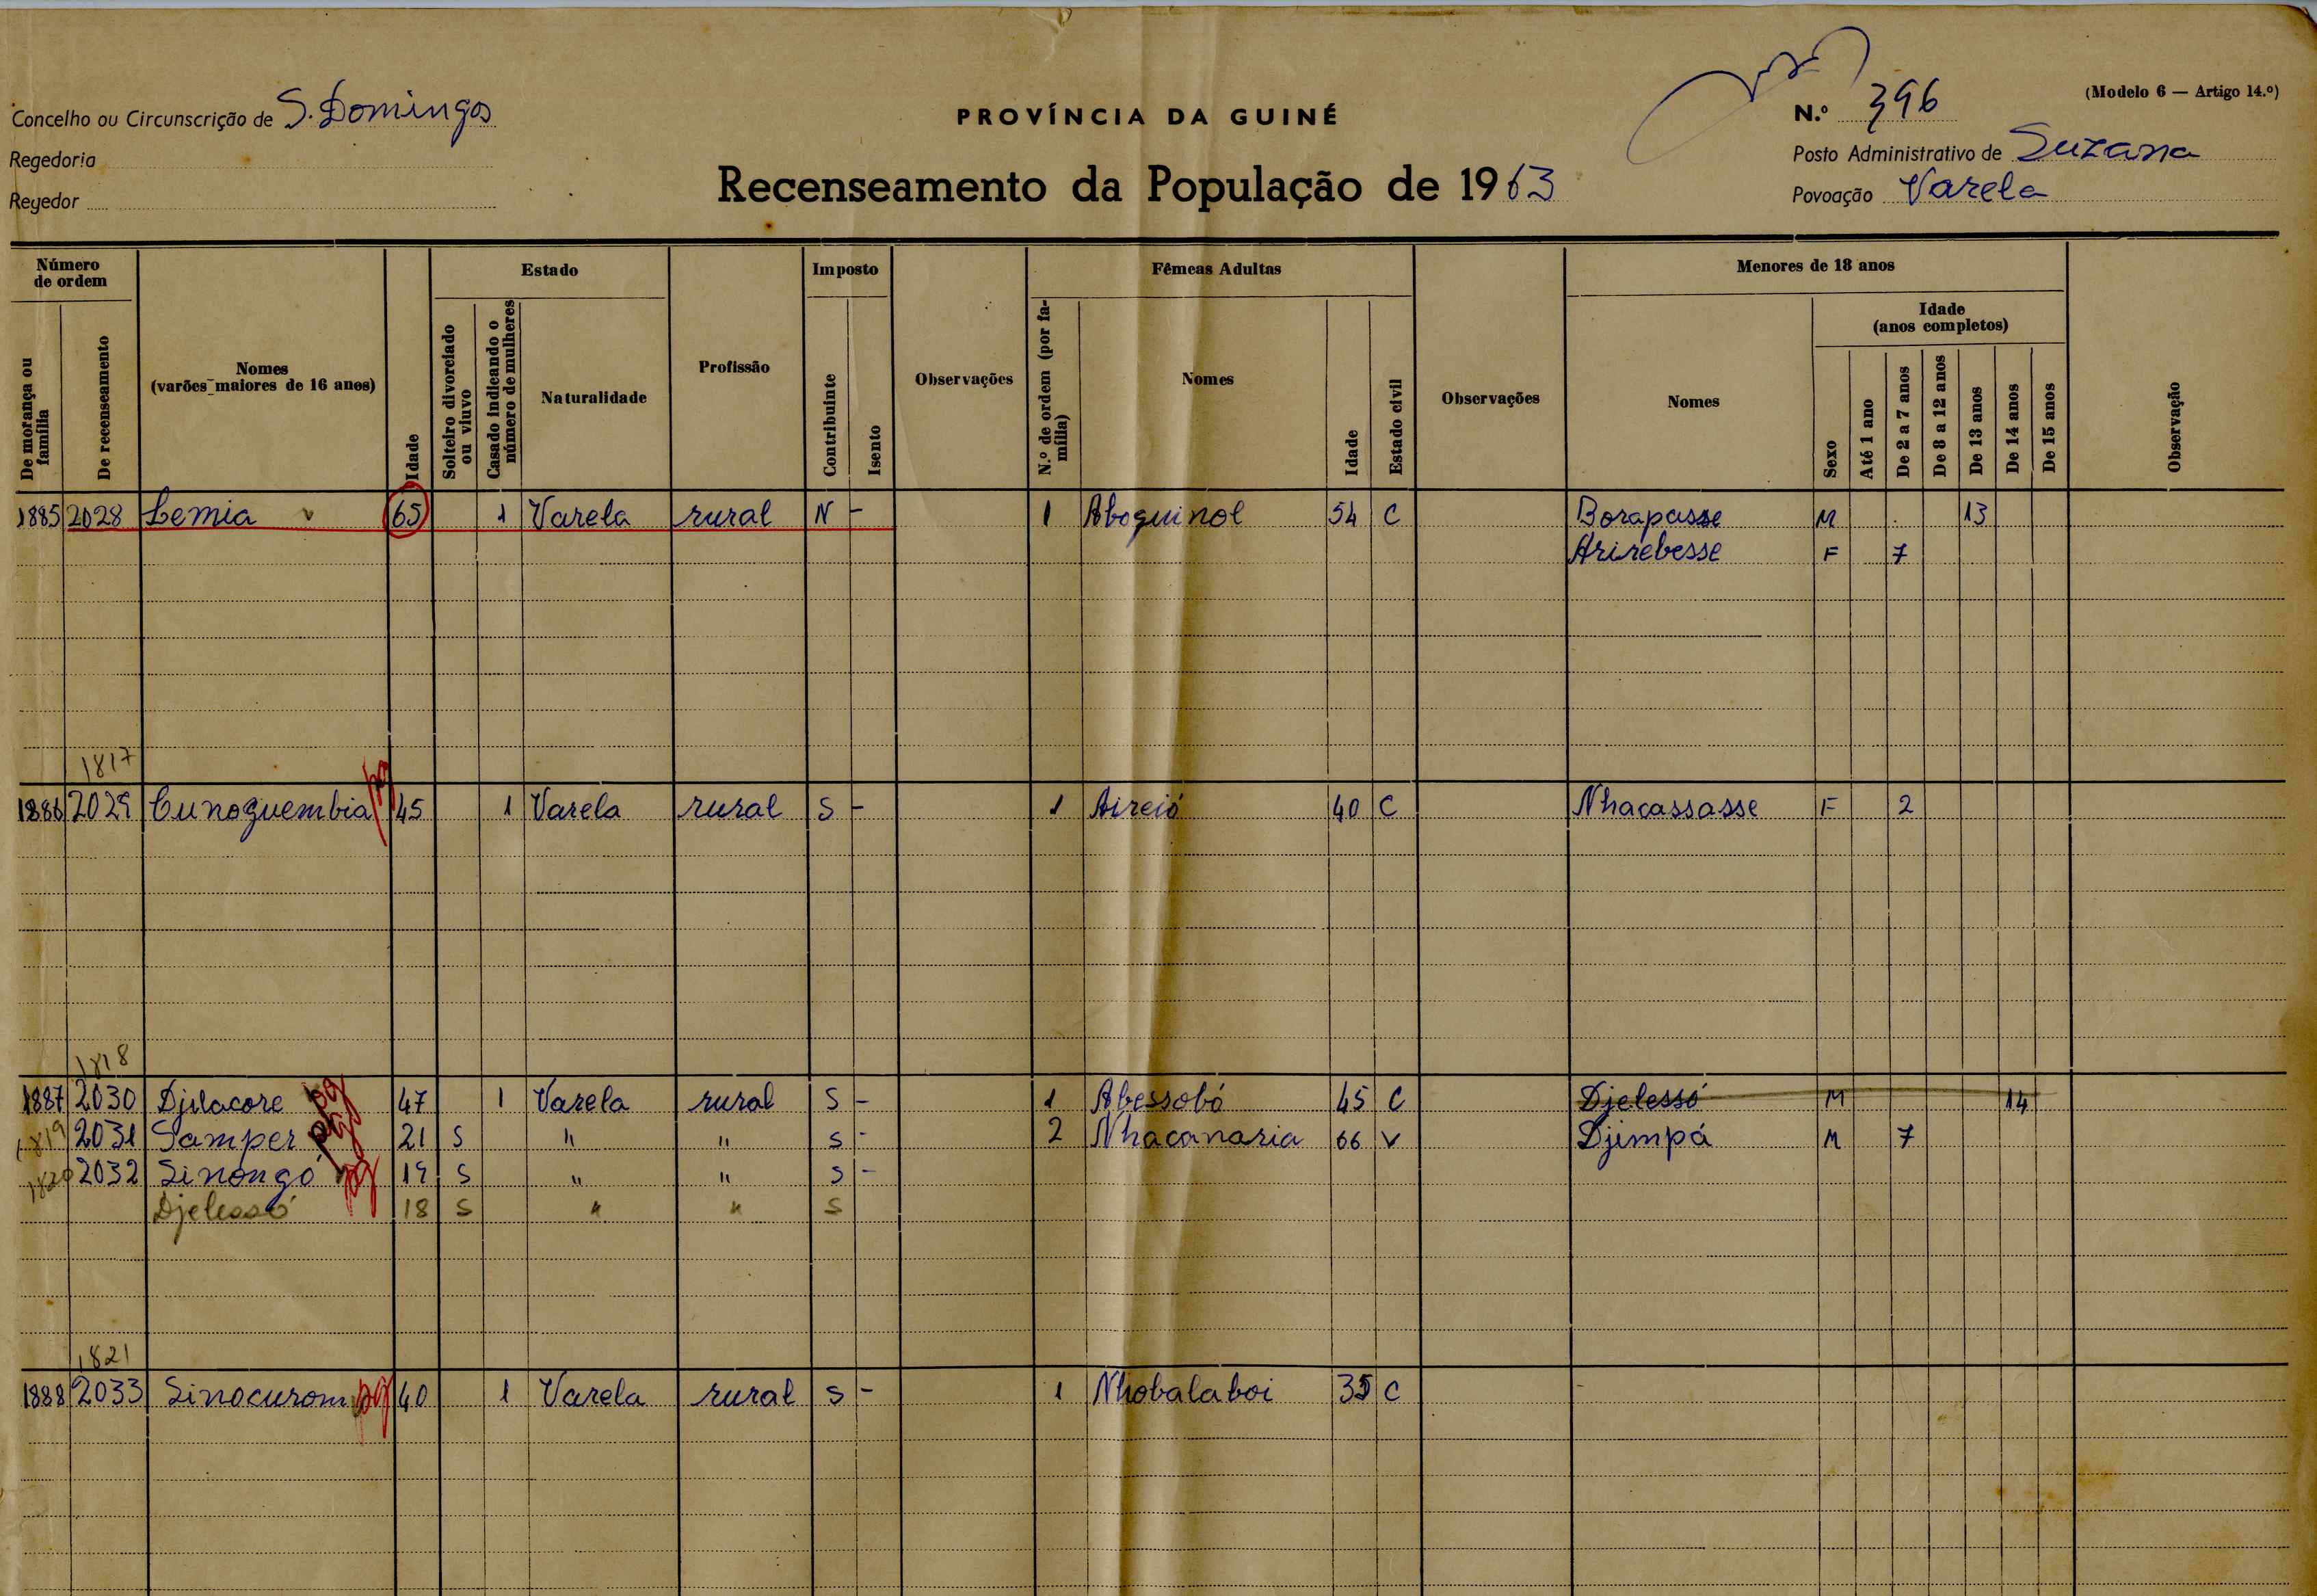 Concelho ou Circunscrição de S. Domingos
Regedoria
Regedor
PROVÍNCIA DA GUINÉ
Recenseamento da População de 1963
(Modelo 6 — Artigo 14.º)
N.º 396
Posto Administrativo de Suzana
Povoação Varela
Número de ordem
De morança ou família
De recenseamento
Nomes
(varões maiores de 16 anos)
Idade
Estado
Solteiro divorciado ou viuvo
Casado indicando o número de mulheres
Naturalidade
Profissão
Imposto
Contribuinte
Isento
Observações
Fêmeas Adultas
N.º de ordem (por família)
Nomes
Idade
Estado civil
Observações
Menores de 18 anos
Nomes
Sexo
Idade
(anos completos)
Até 1 ano
De 2 a 7 anos
De 8 a 12 anos
De 13 anos
De 14 anos
De 15 anos
Observação
1885 2028 Lemia v 65 1 Varela rural N - 1 Aboguinol 54 C Borapasse M 13
Arirebesse F 7
1817
1886 2029 Cunoguembia pg 45 1 Varela rural S - 1 Aireió 40 C Nhacassasse F 2
1818
1887 2030 Djilacore pg 47 1 Varela rural S - 1 Abessobó 45 C Djelessó M 14
1819 2031 Samper pg 21 S " " S - 2 Nhacanaria 66 V Djimpá M 7
1820 2032 Sinongo pg 19 S " " S -
Djelessó 18 S " " S
1821
1888 2033 Sinocurom pg 40 1 Varela rural S - 1 Nhobalaboi 35 C